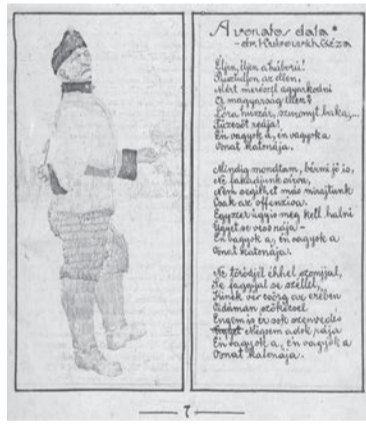 A vonatos dala*
– dr. Kubovich Géza
Éljen, éljen a háború!
Pusztuljon az ellen,
Mért merészel agyarkodni
A magyarság ellen?
Lóra huszár, szuronyt baka,...
Tüzesét reája!
Én vagyok a, én vagyok a
Vonat katonája.
Mindig mondtam, bármi jő is,
Ne fakadjunk sírva,
Nem segíthet más mirajtunk
Csak az offenziva.
Egyszer úgyis meg kell halni
Ügyet se vess rája –
Én vagyok a, én vagyok a
Vonat katonája.
Ne törődjél éhhel szomjjal,
Se faggyal se széllel,
Kinek vér csörg az erében
Vidáman szökéssel
Engem is ér sok szenvedés
Mégsem adok rája
Én vagyok a, én vagyok a
Vonat katonája.
7